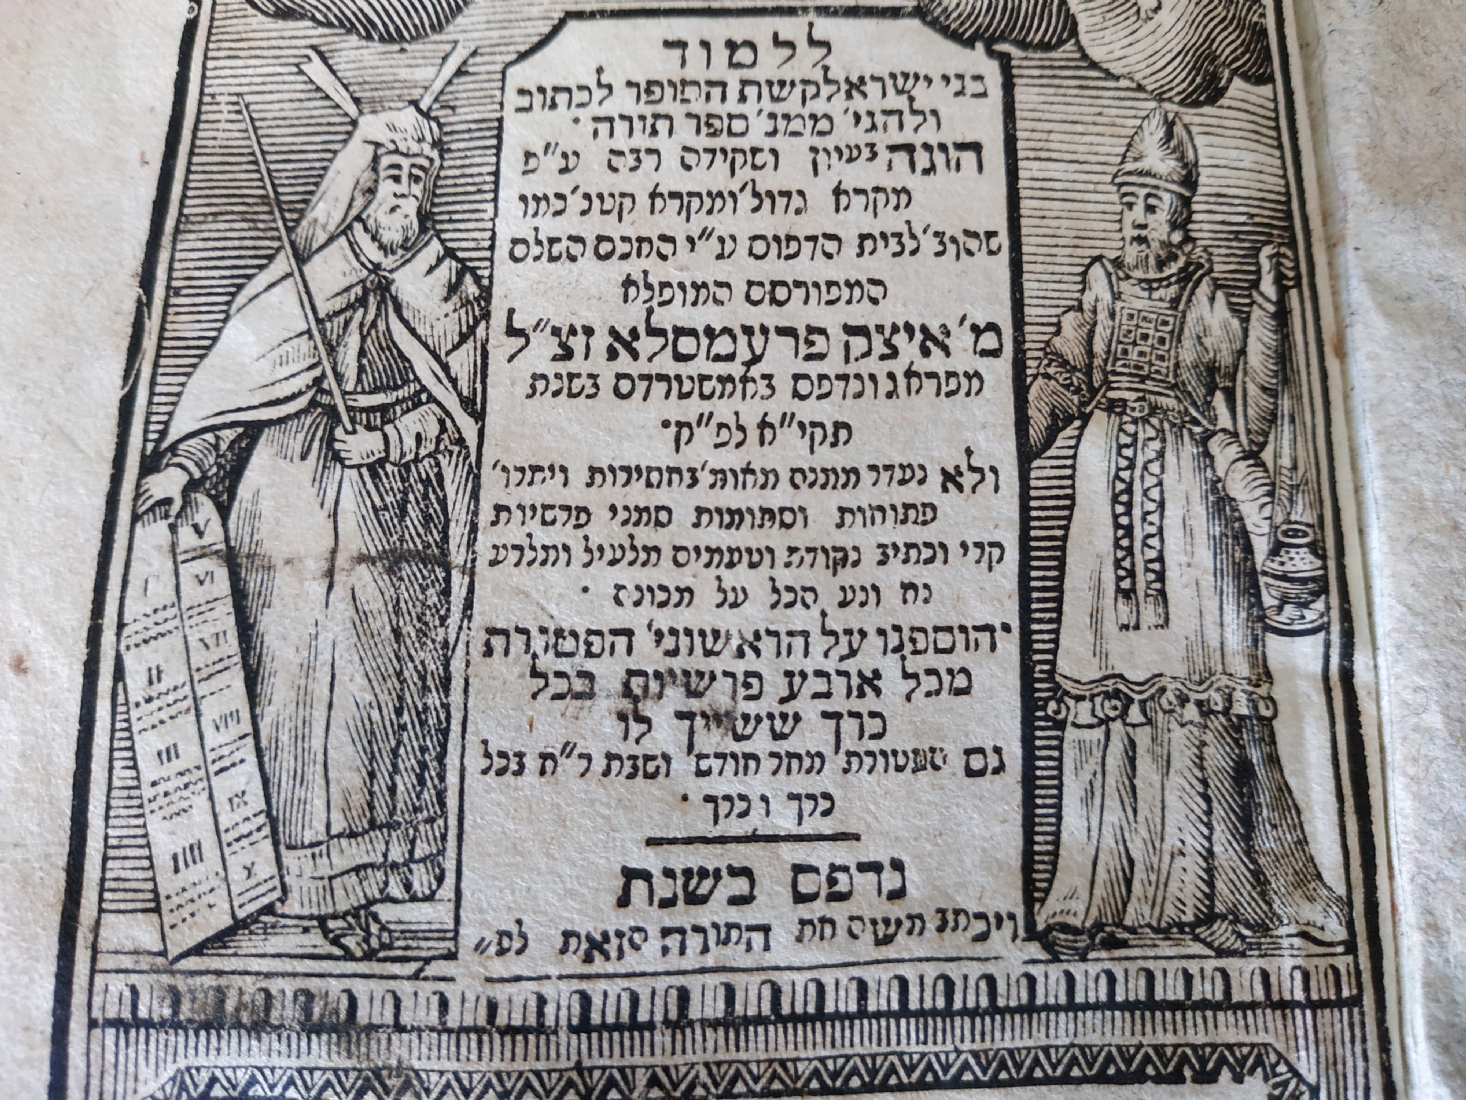 ללמוד
בני ישראל קשת הסופר לכתוב
ולהגי׳ ממנ׳ ספר תורה·
הוגה בעיון ושקידה רבה ע״פ
מקרא גדול׳ ומקרא קטנ׳ כמו
שהוב׳ לבית הדפוס ע״י החכם השלם
המפורסם המופלא
מ׳ איצק פרעמסלא זצ״ל
מפראג ונדפס באמשטרדם בשנת
תקי״א לפ״ק·
ולא נעדר מתנה מאות׳ בחסירות ויתרו׳
פתוחות וסתומות סמני פרשיות
קרי וכתיב נקודה וטעמים מלעיל ומלרע
נח ונע הכל על מכונה·
הוספנו על הראשוני׳ הפטורת
מכל ארבע פרשיות בכל
כרך ששייך לו
גם הפטורת מחר חודש ושבת ר״ח בכל
כרך וכרך·
נדפס בשנת
ויכתב משה את התורה הזאת לפ״
V
VI
VII
VIII
IX
X
I
II
III
IIII